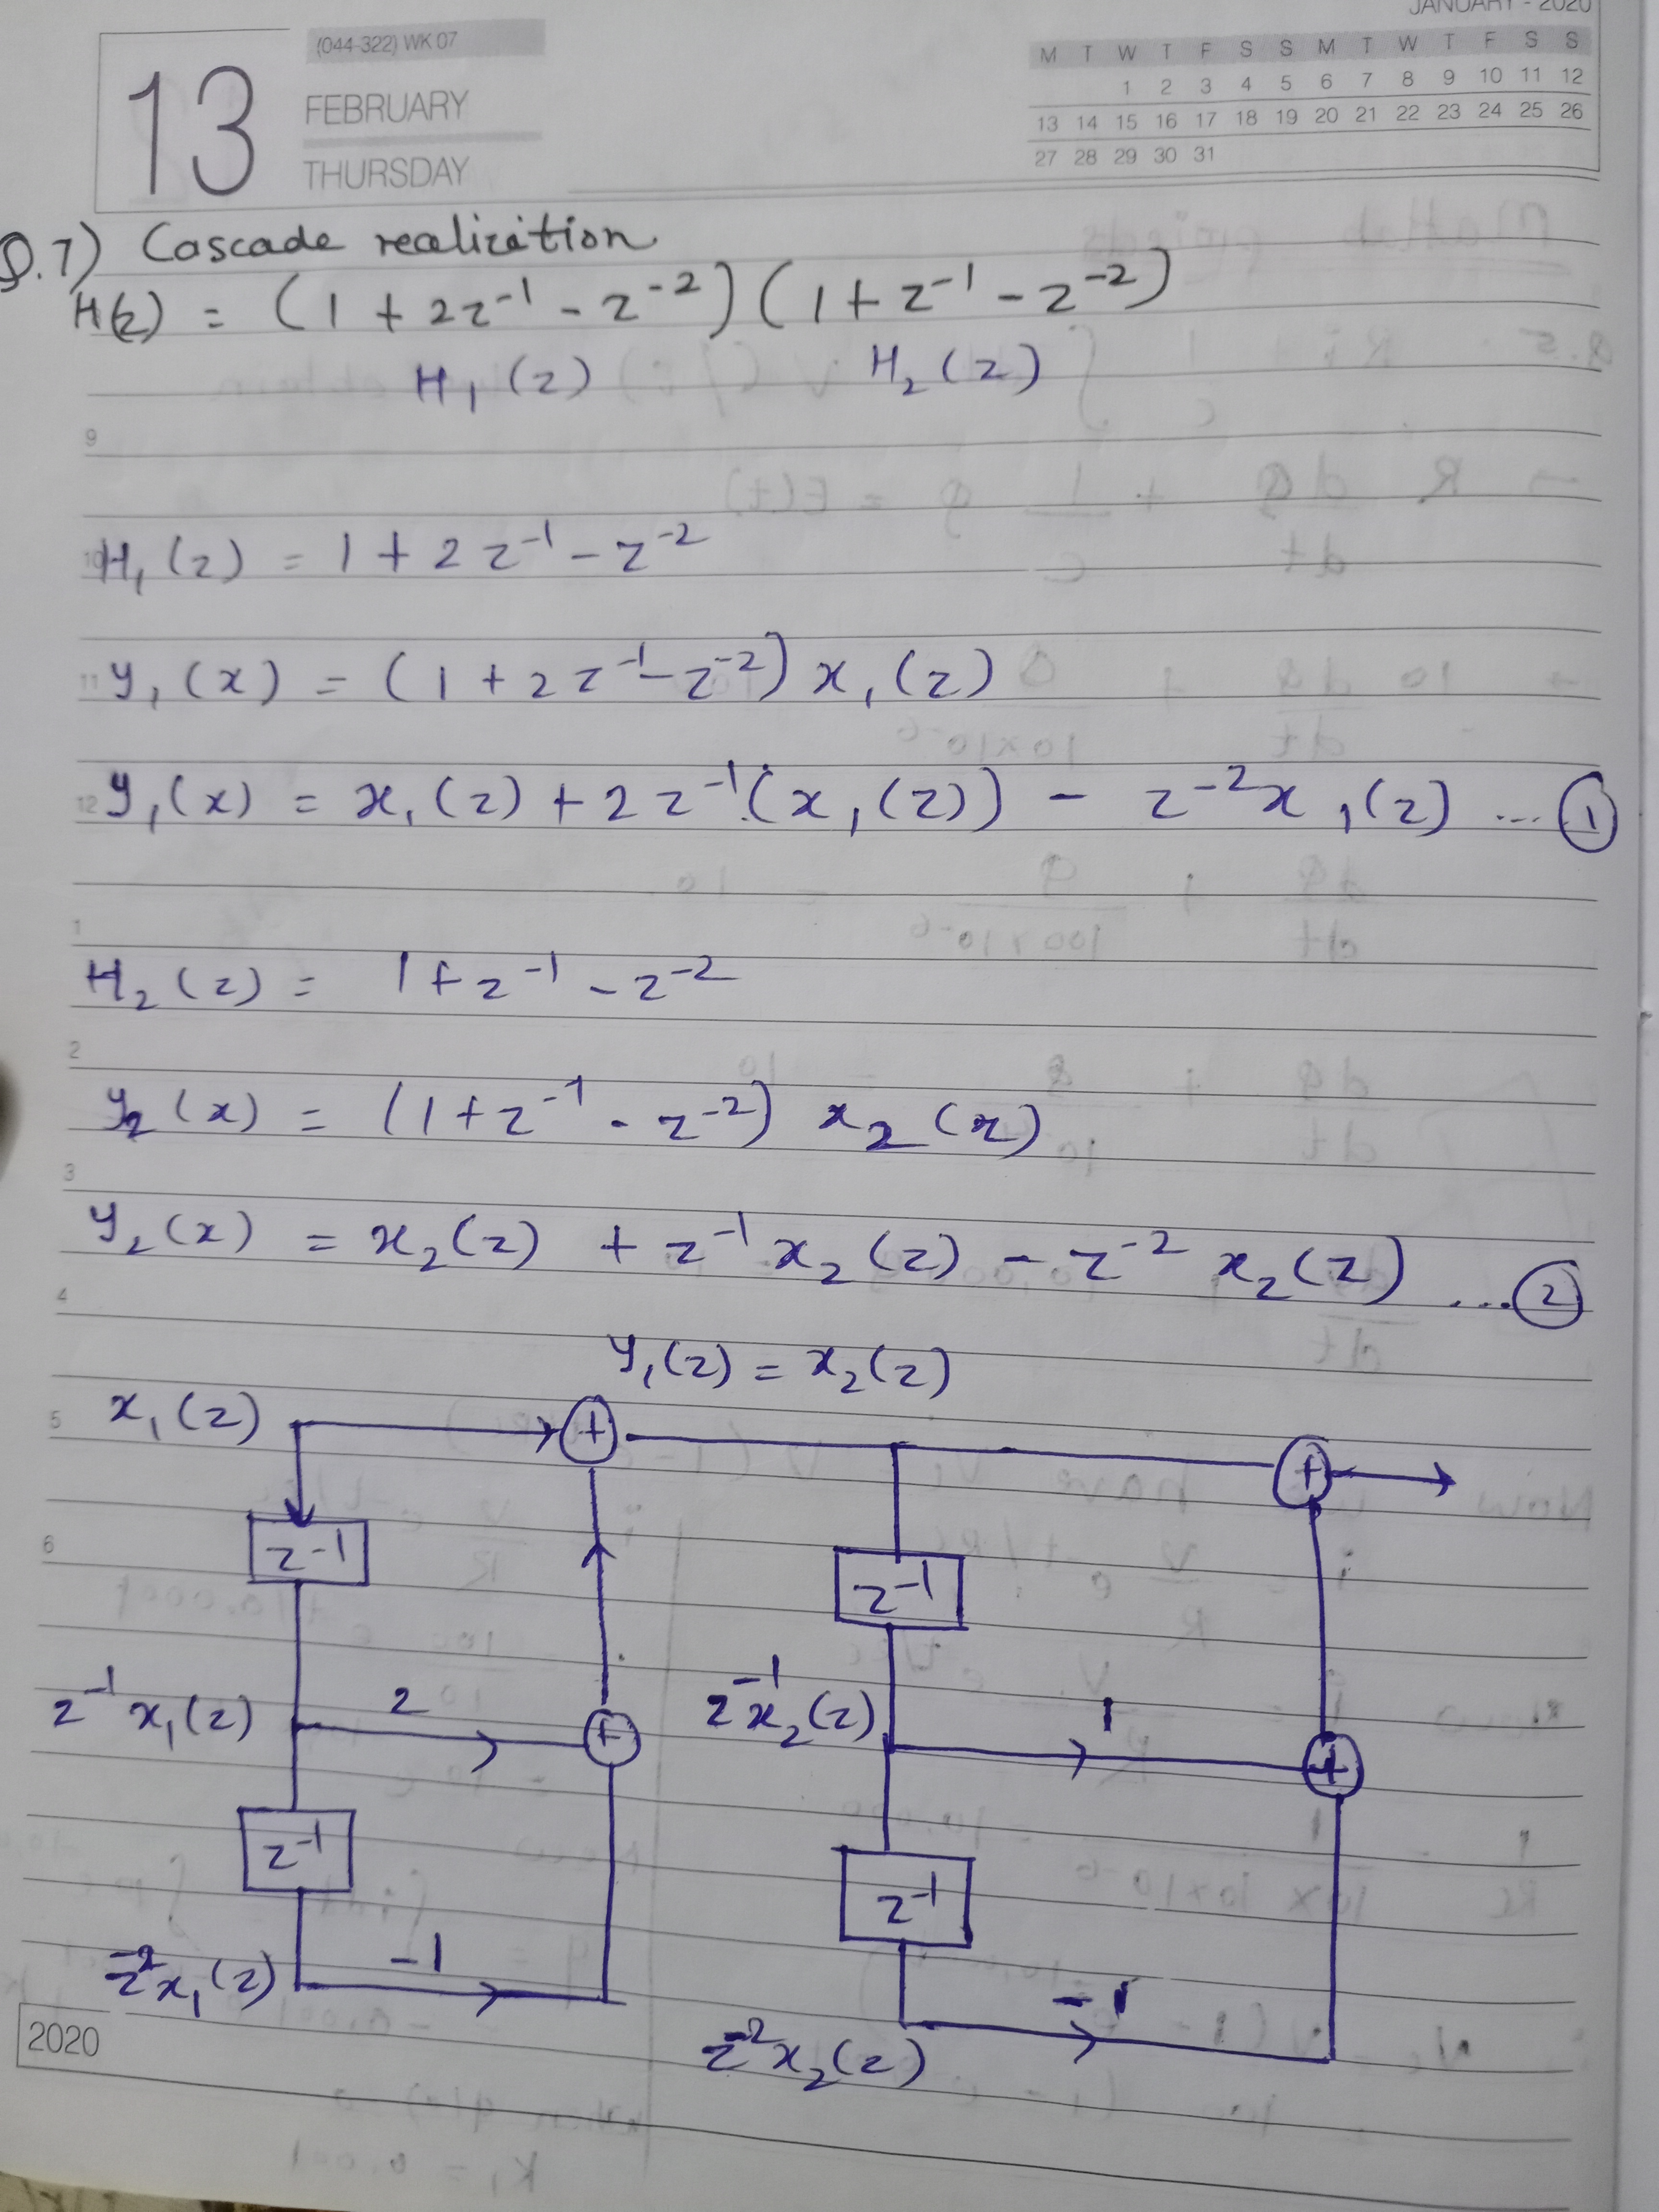 JANUARY - 2020
(044-322) WK 07
13
FEBRUARY
THURSDAY
M T W T F S S M T W T F S S
1 2 3 4 5 6 7 8 9 10 11 12
13 14 15 16 17 18 19 20 21 22 23 24 25 26
27 28 29 30 31
Q.7) Cascade realization
H(z) = (1 + 2z⁻¹ - z⁻²) (1 + z⁻¹ - z⁻²)
H₁(z) H₂(z)
9
10 H₁(z) = 1 + 2z⁻¹ - z⁻²
11 y₁(x) = (1 + 2z⁻¹ - z⁻²) x₁(z)
12 y₁(x) = x₁(z) + 2z⁻¹(x₁(z)) - z⁻²x₁(z) ... ①
1
H₂(z) = 1 + z⁻¹ - z⁻²
2
y₂(x) = (1 + z⁻¹ - z⁻²) x₂(z)
3
y₂(x) = x₂(z) + z⁻¹x₂(z) - z⁻²x₂(z) ... ②
4
y₁(z) = x₂(z)
5 x₁(z) + +
6 z⁻¹ z⁻¹
z⁻¹x₁(z) 2 + z⁻¹x₂(z) 1 +
z⁻¹ z⁻¹
z⁻²x₁(z) -1 z⁻²x₂(z) -1
2020